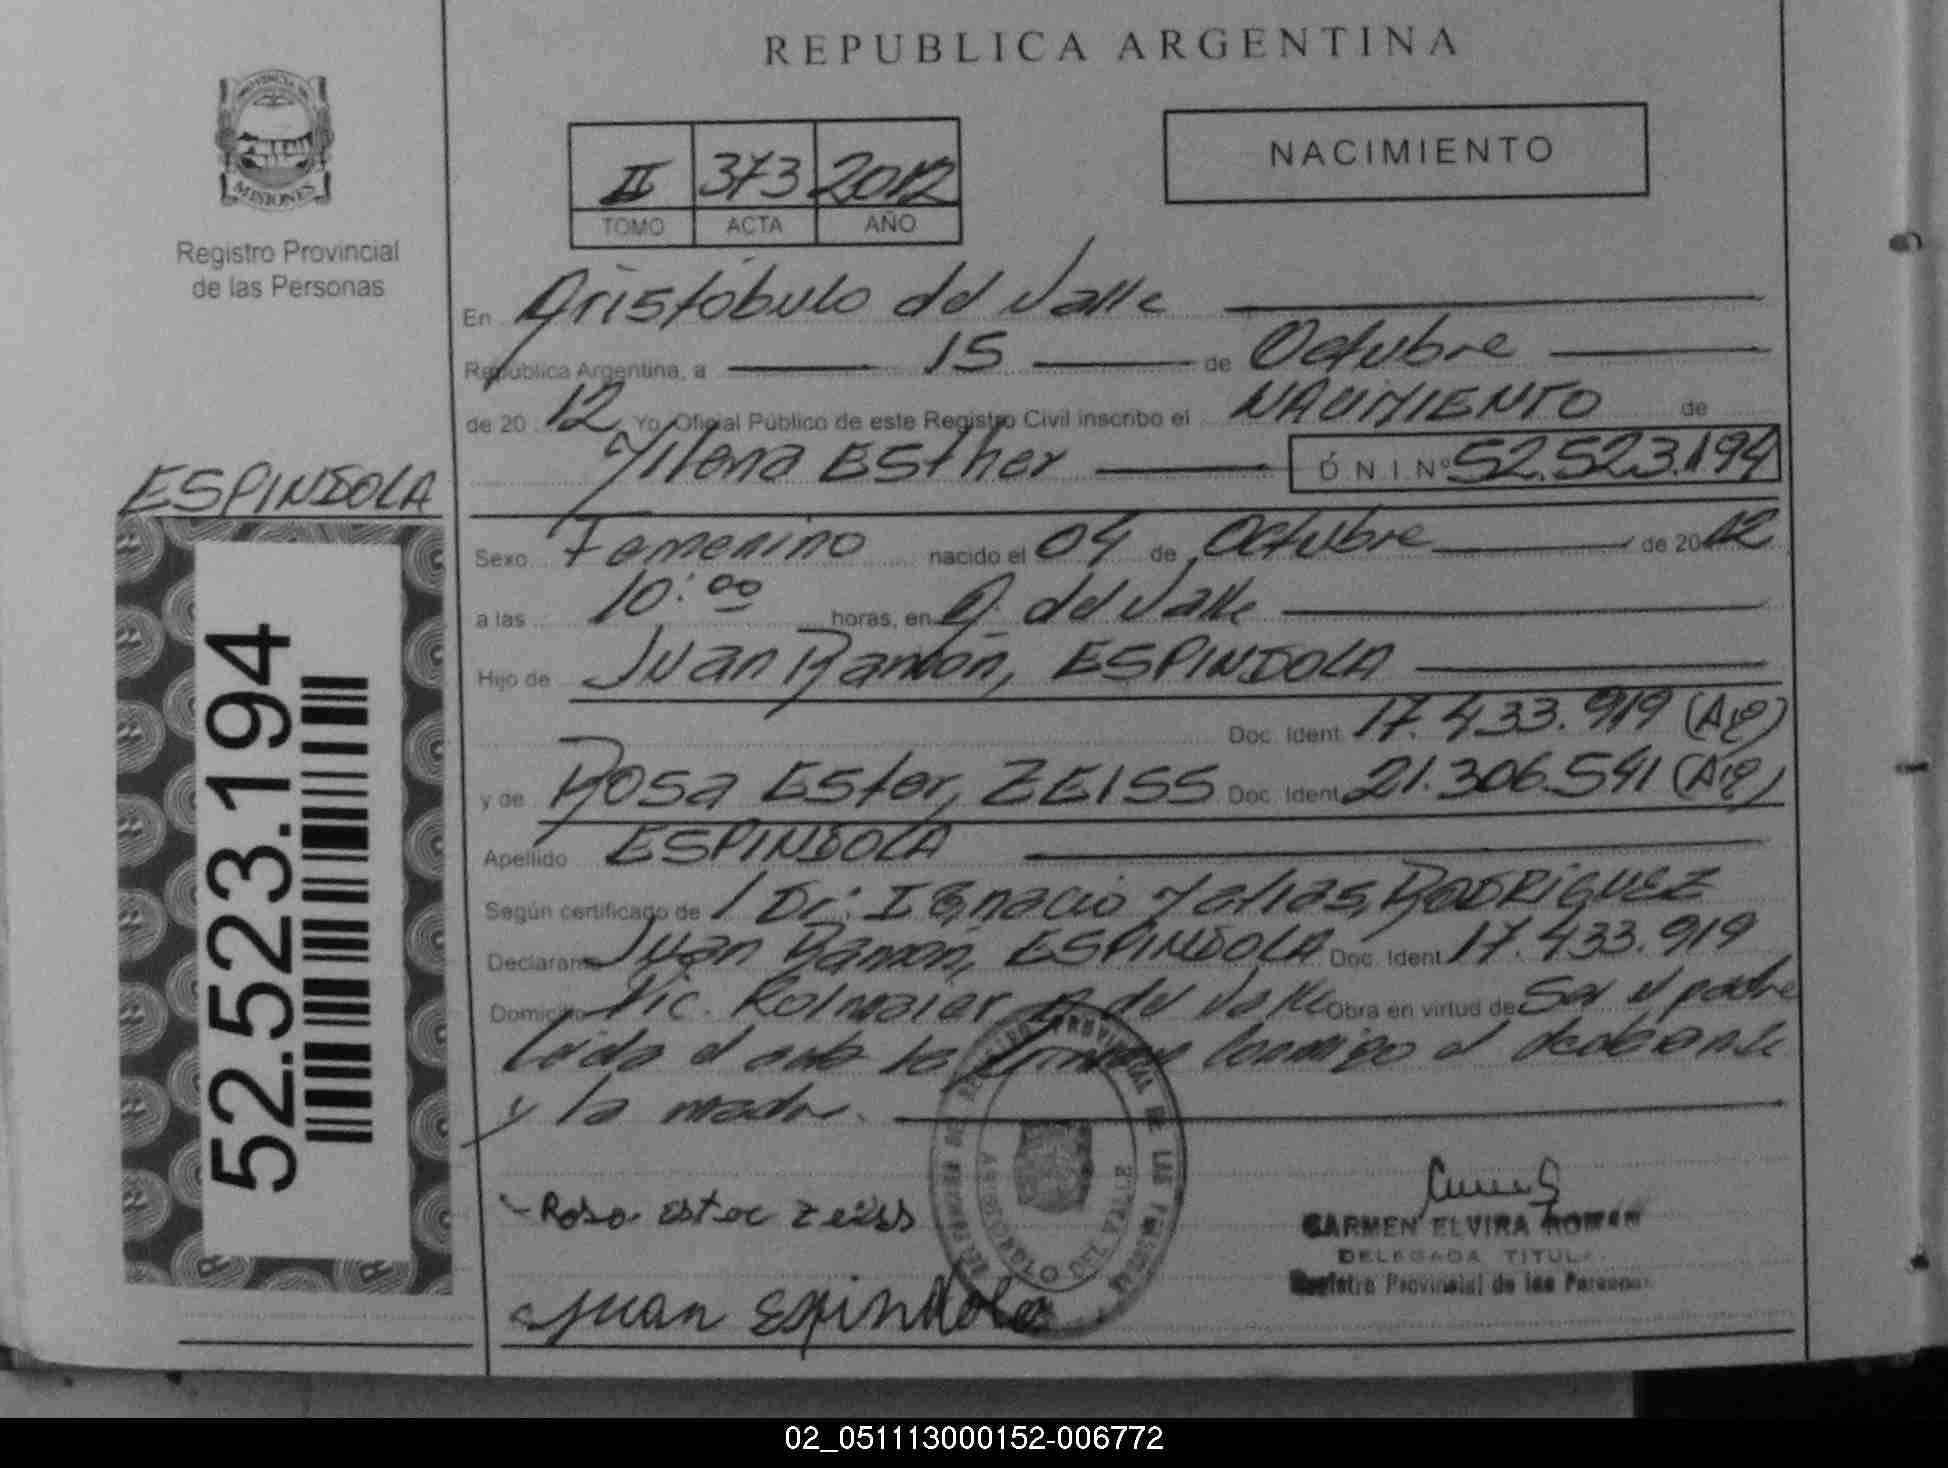 REPUBLICA ARGENTINA
PROVINCIA DE
MISIONES
Registro Provincial
de las Personas
II 373 2012
TOMO ACTA AÑO
NACIMIENTO
En Aristóbulo del Valle
República Argentina, a 15 de Octubre
de 20 12 Yo Oficial Público de este Registro Civil inscribo el NACIMIENTO de
Milena Esther D N I Nº 52.523.194
ESPINDOLA
52.523.194
Sexo Femenino nacido el 04 de Octubre de 2012
a las 10:00 horas, en A. del Valle
Hijo de Juan Ramón, ESPINDOLA
Doc. Ident 17.433.919 (Arg)
y de Rosa Ester, ZEISS Doc. Ident 21.306.541 (Arg)
Apellido ESPINDOLA
Según certificado de Dr. Ignacio Matias, RODRIGUEZ
Declarante Juan Ramón, ESPINDOLA Doc. Ident 17.433.919
Domicilio Pic. Rolmaier A. del Valle Obra en virtud de Ser el padre
Leida el acta la firman conmigo el declarante
y la madre.
Rosa Ester Zeiss
Juan Espindola
CARMEN ELVIRA ROMAN
DELEGADA TITULAR
Registro Provincial de las Personas
REGISTRO PROVINCIAL DE LAS PERSONAS
ARISTOBULO DEL VALLE
02_051113000152-006772